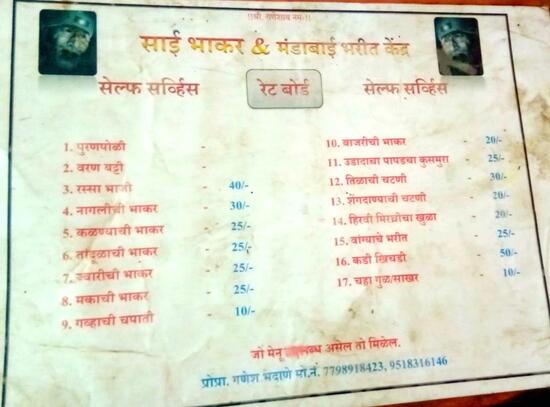 ।।श्री. गणेशाय नमः।।
साई भाकर & मंडाबाई भरीत केंद्र
सेल्फ सर्व्हिस रेट बोर्ड सेल्फ सर्व्हिस
1. पुरणपोळी -
2. वरण बट्टी -
3. रस्सा भाजी - 40/-
4. नागलीची भाकर - 30/-
5. कळण्याची भाकर - 25/-
6. तांदूळाची भाकर - 25/-
7. ज्वारीची भाकर - 25/-
8. मकाची भाकर - 25/-
9. गव्हाची चपाती - 10/-
10. बाजरीची भाकर - 20/-
11. उडादाचा पापडचा कुसमुरा - 25/-
12. तिळाची चटणी - 30/-
13. शेंगदाण्याची चटणी - 20/-
14. हिरवी मिरचीचा खुळा - 20/-
15. वांग्याचे भरीत - 25/-
16. कडी खिचडी - 50/-
17. चहा गुळ/साखर - 10/-
जो मेनू लब्ध असेल तो मिळेल.
प्रोप्रा. गणेश भदाणे मो.नं. 7798918423, 9518316146